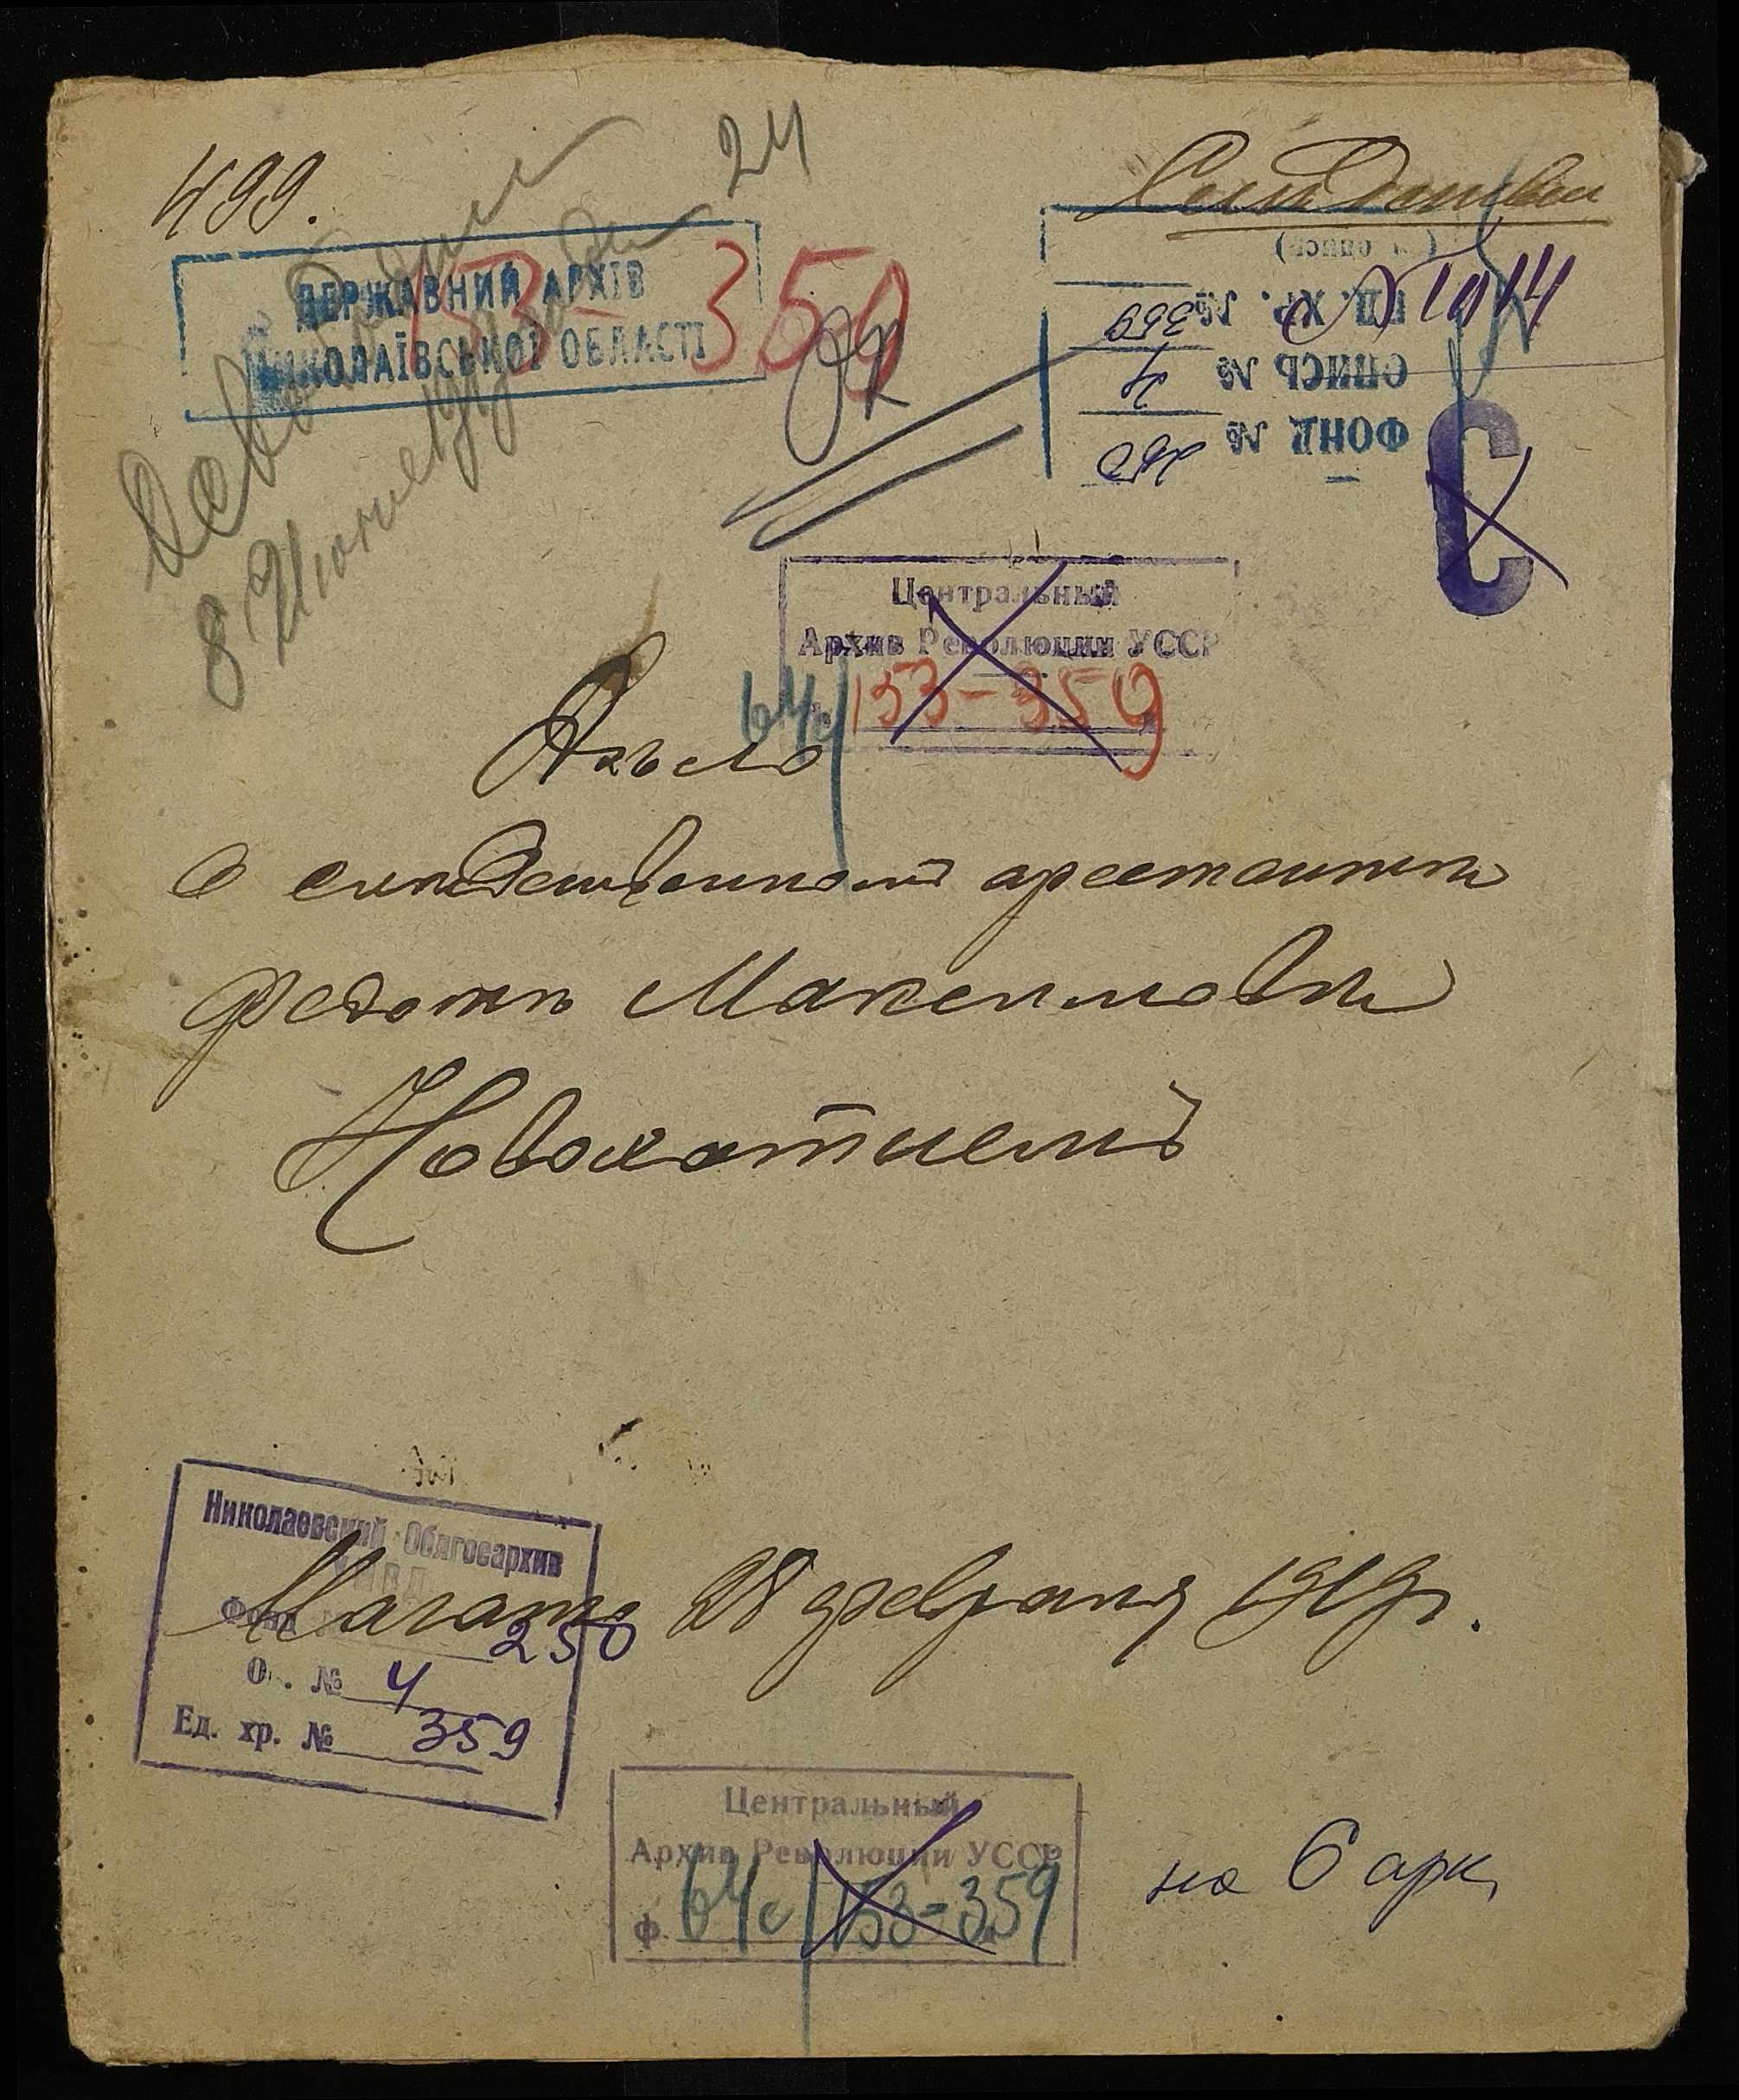 499.
24
ДЕРЖАВНИЙ АРХІВ
МИКОЛАЇВСЬКОЇ ОБЛАСТІ
153-359
ФОНД № 250
ОПИСЬ № 4
ЕД. ХР. № 359
С
Центральный
Архив Революции УССР
64с/153-359
Дѣло
О слѣдственномъ арестантѣ
Федотѣ Максимовѣ
Новохатнемъ
Николаевский Облгосархив
УМВД
Фонд 250
О . № 4
Ед. хр. № 359
Начато 28 февраля 1919г.
Центральный
Архив Революции УССР
ф. 64с/153-359
на 6 арк.